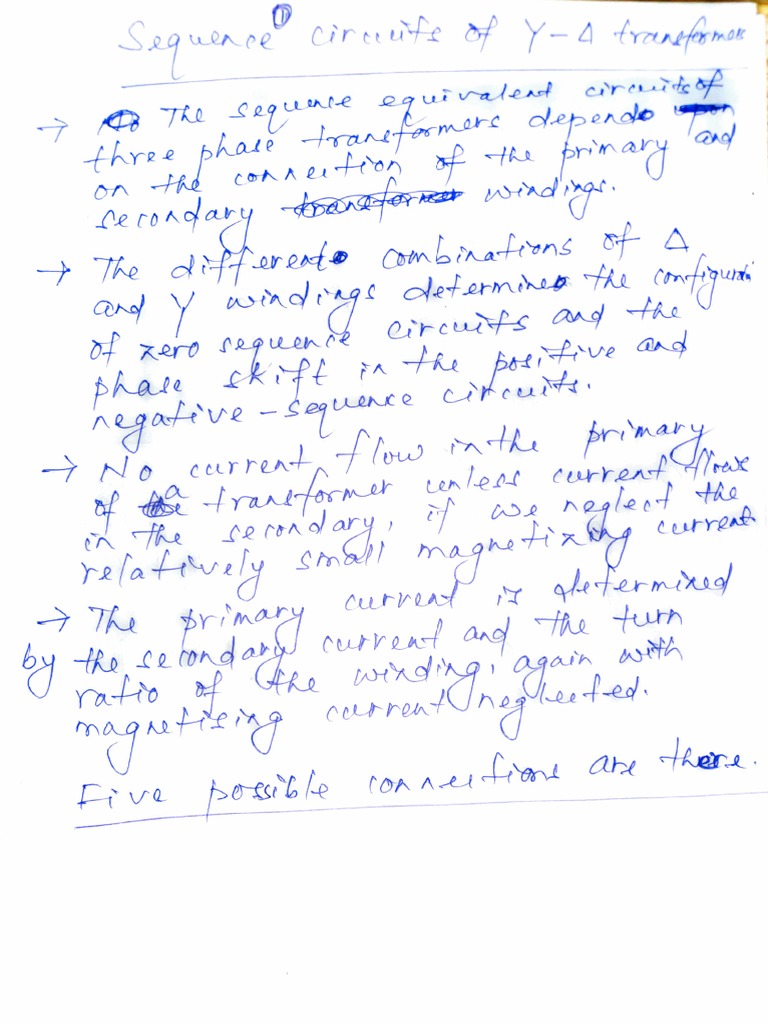 ①
Sequence circuits of Y-Δ transformers
→ The sequence equivalent circuits of
three phase transformers depend
on the connection of the primary and
secondary windings.
→ The different combinations of Δ
and Y windings determine the configurati
of zero sequence circuits and the
phase shift in the positive and
negative-sequence circuits.
→ No current flow in the primary
of a transformer unless current flows
in the secondary, if we neglect the
relatively small magnetizing current
→ The primary current is determined
by the secondary current and the turn
ratio of the winding, again with
magnetising current neglected.
Five possible connections are there.